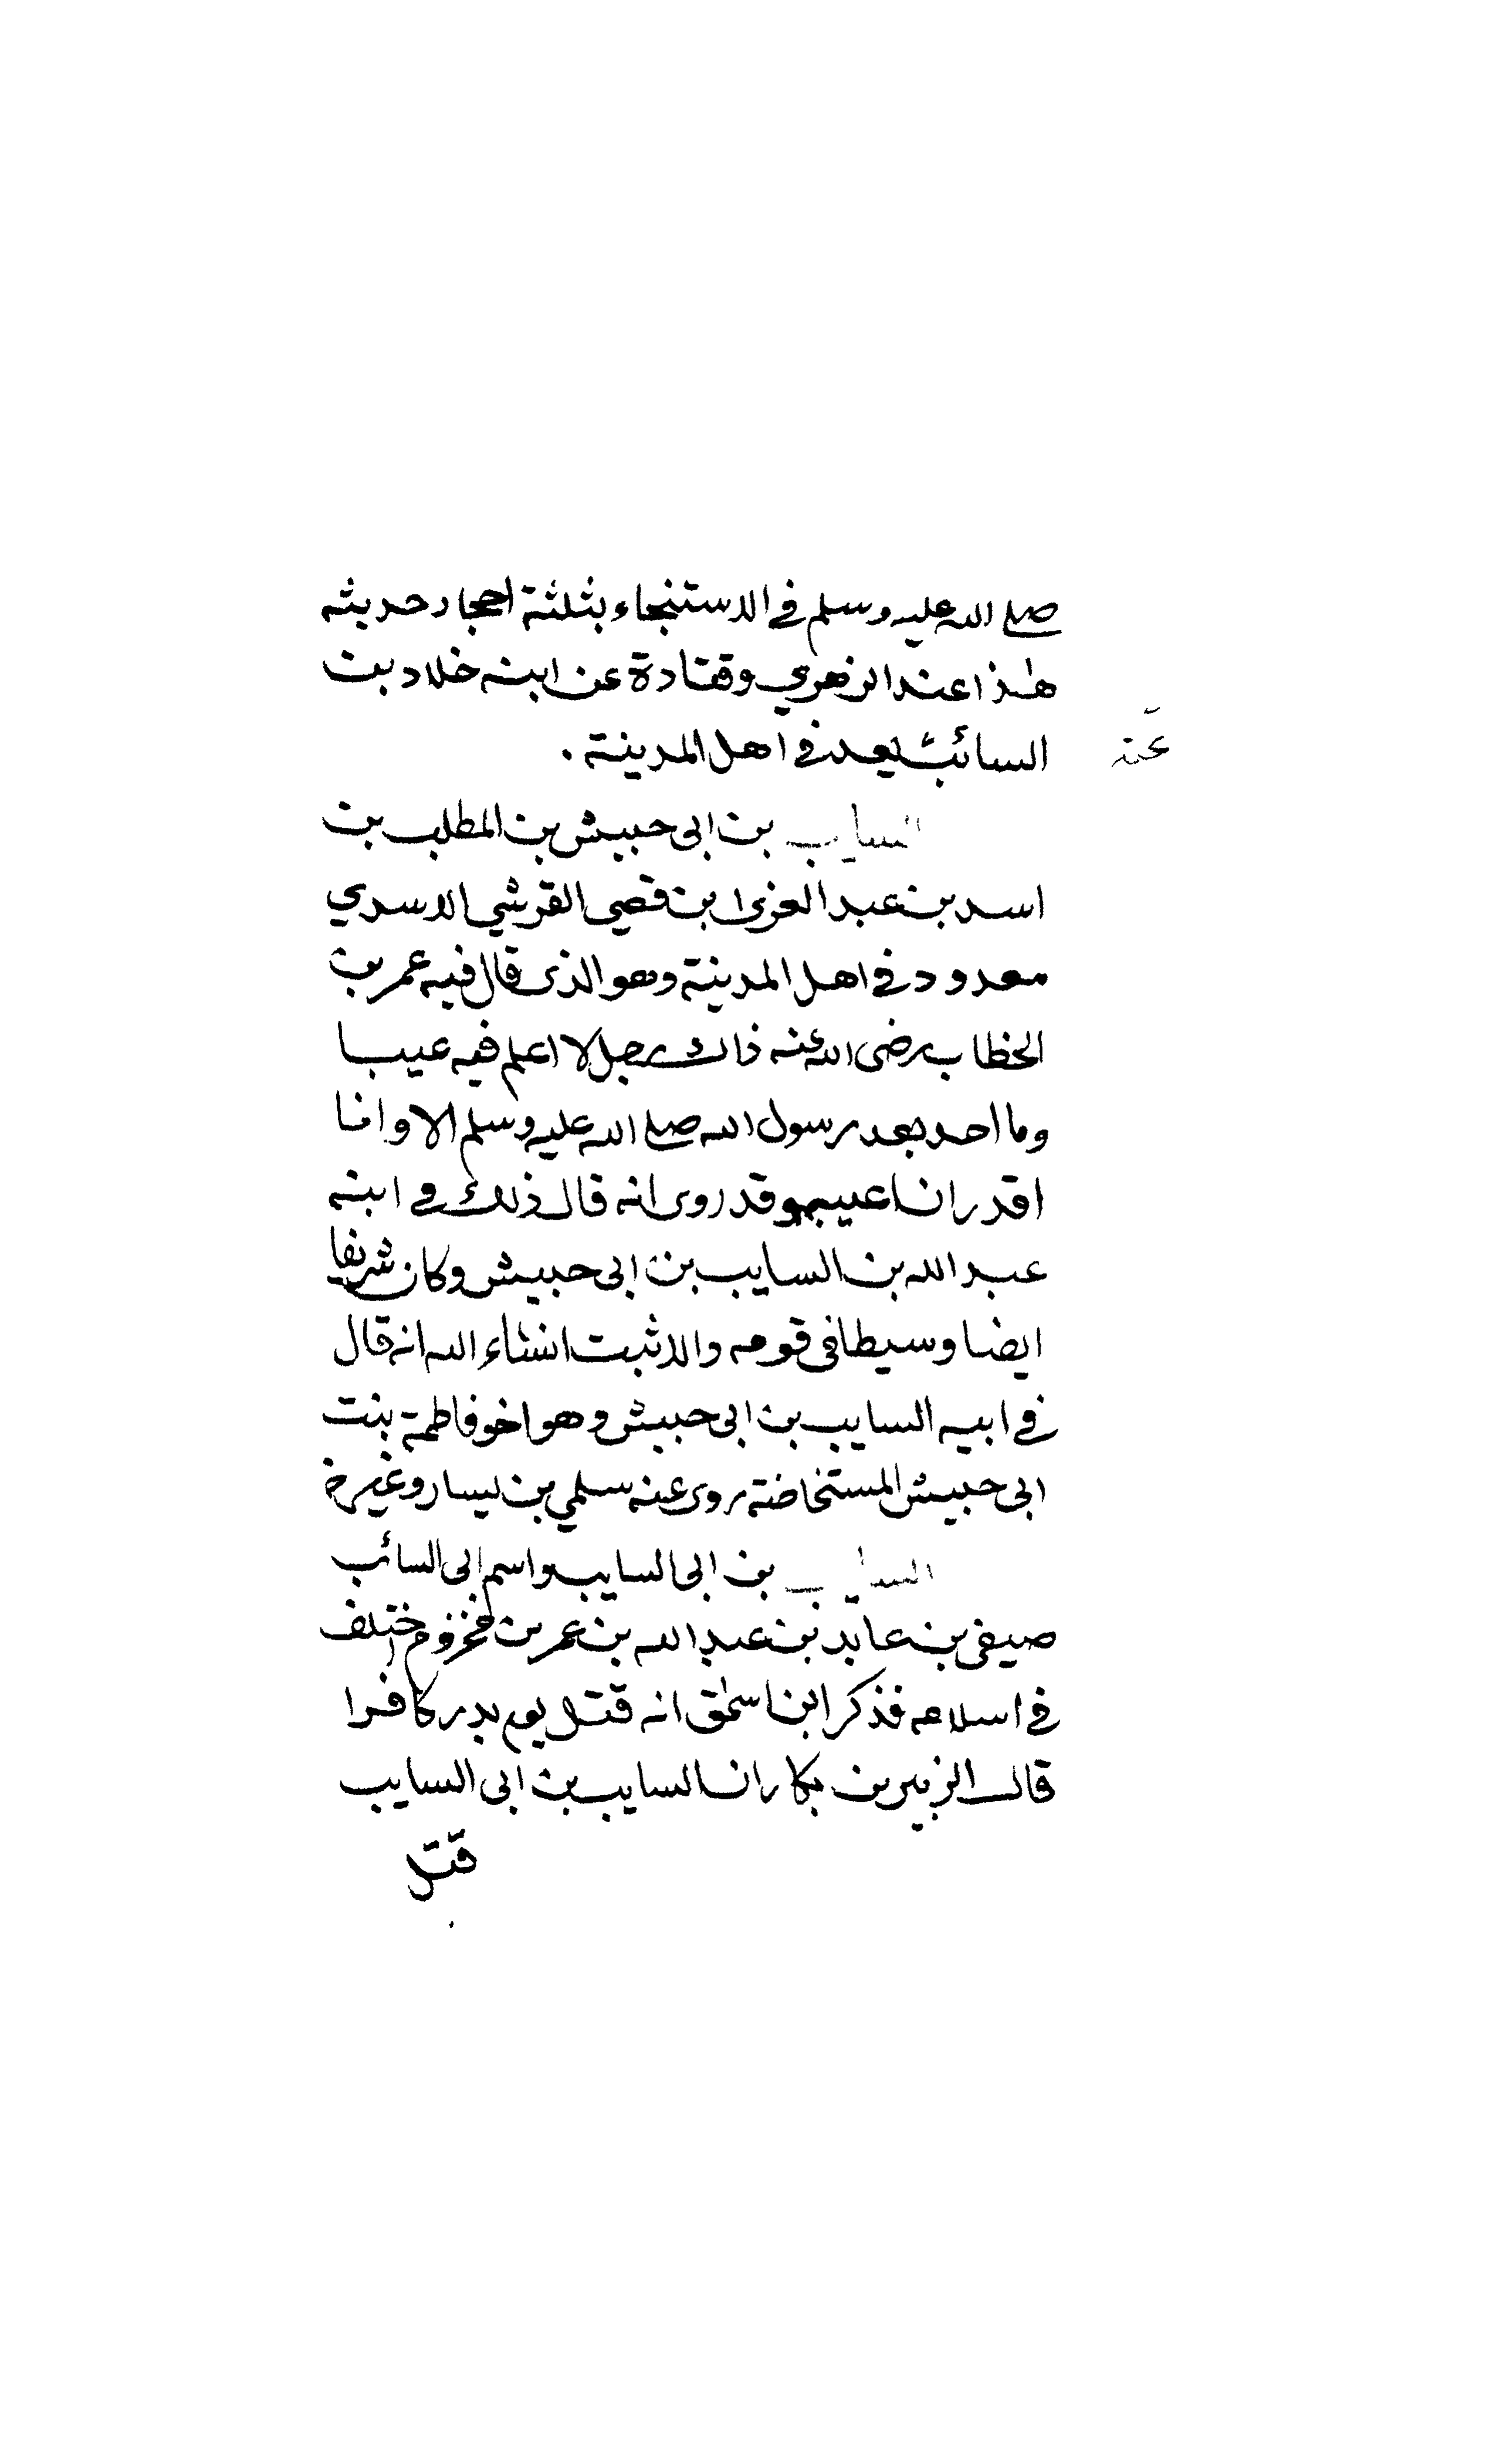 صلى الله عليه وسلم في الاستنجاء بثلثة احجار حديثه
هذا عند الزهري وقتادة عن ابنه خلاد بن
السائب يعد في اهل المدينة .
عنه
السايب بن ابى حبيش بن المطلب بن
اسد بن عبد العزى ابن قصي القرشي الاسدي
معدود في اهل المدينة وهو الذى قال فيه عمر بن
الخطاب رضى الله عنه ذاك رجل لا اعلم فيه عيبا
وما احد بعد رسول الله صلى الله عليه وسلم الا وانا
اقدر ان اعيبه وقد روى انه قال ذلك في ابنه
عبد الله بن السايب بن ابى حبيش وكان شريفا
ايضا وسيطا في قومه والاثبت انشاء الله انه قال
في ابيه السايب بن ابى حبيش وهو اخو فاطمة بنت
ابى حبيش المستحاضة روى عنه سلمي بن يسار وغيره
السايب بن ابى السايب واسم ابى السائب
صيفى بن عابد بن عبد الله بن عمر بن مخزوم اختلف
في اسلامه فذكر ابن اسحق انه قتل يوم بدر كافرا
قال الزبير بن بكار ان السايب بن ابى السايب
قتل